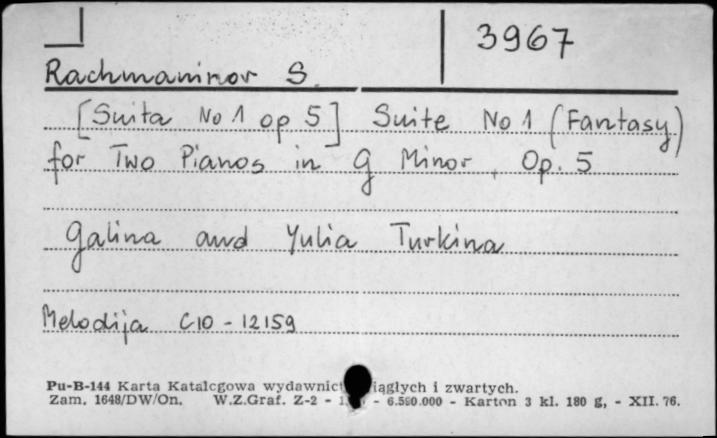 3967
Rachmaninov S.
[Suita No 1 op 5] Suite No 1 (Fantasy)
for Two Pianos in G Minor, Op. 5
Galina and Yulia Turkina
Melodija C10-12159
Pu-B-144 Karta Katalogowa wydawnict iągłych i zwartych.
Zam. 1648/DW/On. W.Z.Graf. Z-2 - - 6.590.000 - Karton 3 kl. 180 g, - XII. 76.